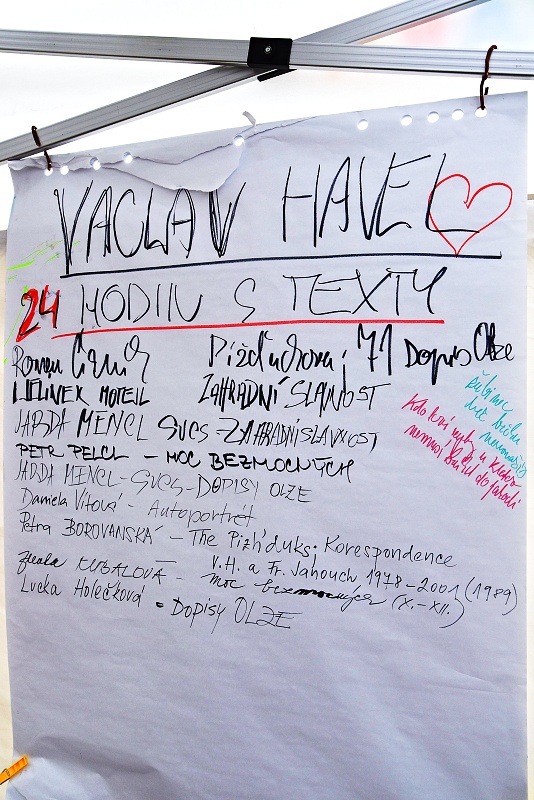 VACLAV HAVEL
24 HODIN S TEXTY
Roman Černík Pižďuchovi; 71 Dopis Olze
JELINEK MOTEJL ZAHRADNÍ SLAVNOST
JARDA MENCL SVCS - ZAHRADNÍ SLAVNOST
PETR PELCL - MOC BEZMOCNÝCH
JARDA MENCL - SVCS - DOPISY OLZE
Daniela Vítová - Autoportrét
Petra BOROVANSKÁ - The Pižďuks; Korespondence
V.H. a Fr. Janouch 1978-2001 (1989)
KUBALOVÁ - moc bezmocných (X.-XII.)
Lucka Holečková • DOPISY OLZE
Kdo